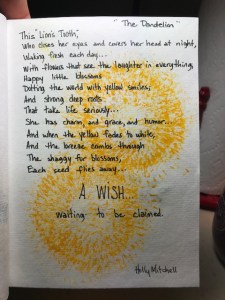 "The Dandelion"
This "Lion's Tooth,"
Who closes her eyes and covers her head at night,
Waking fresh each day...
With flowers that see the laughter in everything,
Happy little blossoms
Dotting the world with yellow smiles,
And strong deep roots
That take life seriously...
She has charm, and grace, and humor...
And when the yellow fades to white,
And the breeze combs through
The shaggy fur blossoms,
Each seed flies away...
A WISH...
waiting to be claimed.
Holly Mitchell